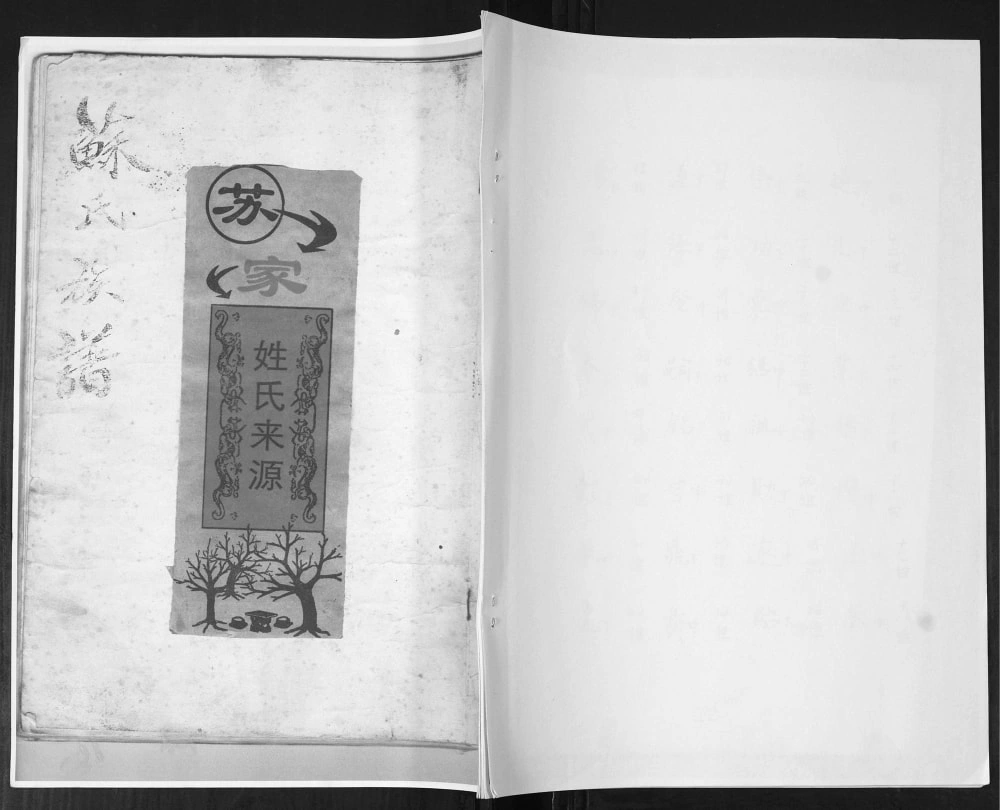 蘇氏族譜
苏
家
姓氏来源